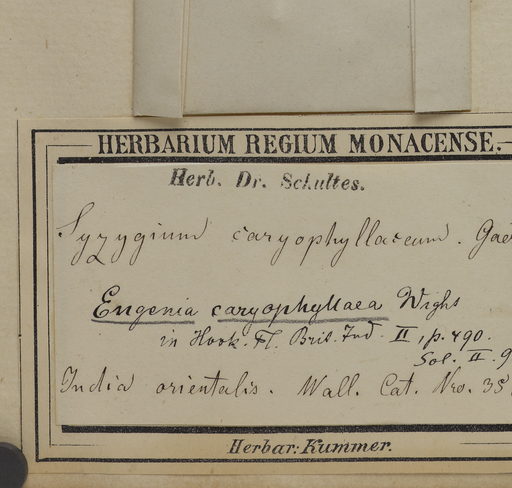 HERBARIUM REGIUM MONACENSE.
Herb. Dr. Schultes.
Syzygium caryophyllaceum. Gae
Eugenia caryophyllaea Wight
in Hook. Fl. Brit. Ind. II, p. 490.
Sol. II. 9
India orientalis. Wall. Cat. Nro. 35
Herbar: Kummer.